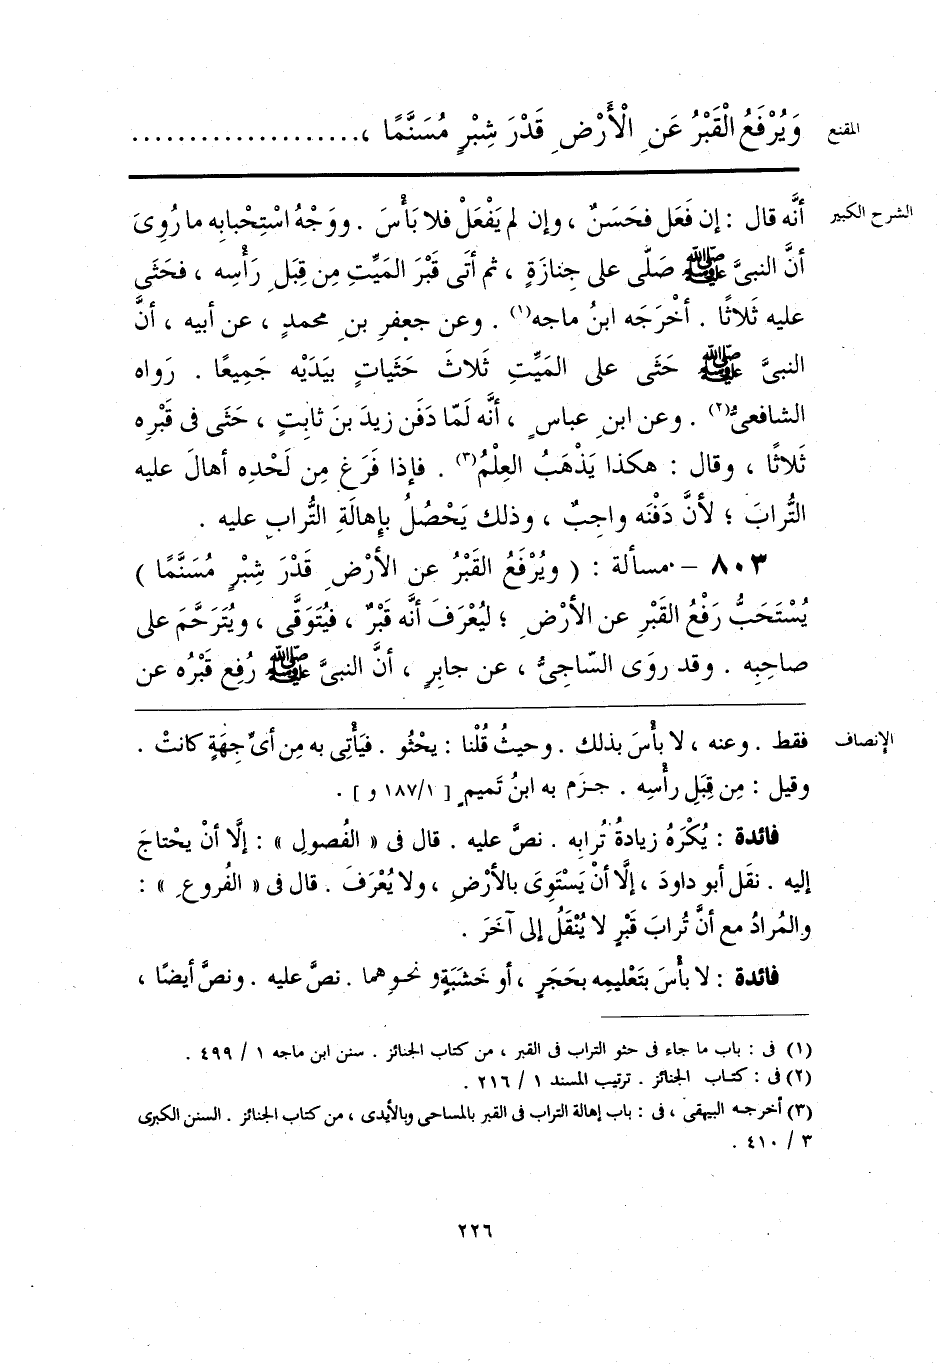 المقنع
وَيُرْفَعُ الْقَبْرُ عَنِ الْأَرْضِ قَدْرَ شِبْرٍ مُسَنَّمًا ، ....................
الشرح الكبير
أنَّه قال : إن فَعَل فحَسَنٌ ، وإن لم يَفْعَلْ فلا بَأْسَ . ووَجْهُ اسْتِحْبابِه ما رُوِىَ
أنَّ النبىَّ ﷺ صَلَّى على جِنازَةٍ ، ثم أتَى قَبْرَ المَيِّتِ مِن قِبَلِ رَأْسِه ، فحَثَى
عليه ثَلاثًا . أخْرَجَه ابنُ ماجه(١) . وعن جعفرِ بنِ محمدٍ ، عن أبيه ، أنَّ
النبىَّ ﷺ حَثَى على المَيِّتِ ثَلاثَ حَثَياتٍ بيَدَيْه جَمِيعًا . رَواه
الشافعىُّ(٢) . وعن ابنِ عباسٍ ، أنَّه لَمّا دَفَن زيدَ بنَ ثابِتٍ ، حَثَى فى قَبْرِه
ثَلاثًا ، وقال : هكذا يَذْهَبُ العِلْمُ(٣) . فإذا فَرَغ مِن لَحْدِه أهالَ عليه
التُّرابَ ؛ لأنَّ دَفْنَه واجِبٌ ، وذلك يَحْصُلُ بإهالَةِ التُّرابِ عليه .
٨٠٣ - مسألة : ( ويُرْفَعُ القَبْرُ عن الأرْضِ قَدْرَ شِبْرٍ مُسَنَّمًا )
يُسْتَحَبُّ رَفْعُ القَبْرِ عن الأرْضِ ؛ ليُعْرَفَ أنَّه قَبْرٌ ، فيُتَوَقَّى ، ويُتَرَحَّمَ على
صاحِبِه . وقد روَى السّاجِىُّ ، عن جابِرٍ ، أنَّ النبىَّ ﷺ رُفِع قَبْرُه عن
الإنصاف
فقط . وعنه ، لا بأْسَ بذلك . وحيثُ قُلْنا : يحْثُو . فيَأْتِى به مِن أىِّ جِهَةٍ كانتْ .
وقيل : مِن قِبَلِ رأْسِه . جزَم به ابنُ تَميمٍ [ ١/١٨٧ و ] .
فائدة : يُكْرَهُ زيادةُ تُرابِه . نصَّ عليه . قال فى « الفُصولِ » : إلَّا أنْ يحْتاجَ
إليه . نقَل أبو داودَ ، إلَّا أنْ يَسْتَوِىَ بالأرْضِ ، ولا يُعْرَفَ . قال فى « الفُروعِ » :
والمُرادُ مع أنَّ تُرابَ قَبْرٍ لا يُنْقَلُ إلى آخَرَ .
فائدة : لا بأْسَ بتَعْليمِه بحَجَرٍ ، أو خَشَبَةٍ ونحوِهما . نصَّ عليه . ونصَّ أيضًا ،
(١) فى : باب ما جاء فى حثو التراب فى القبر ، من كتاب الجنائز . سنن ابن ماجه ١ / ٤٩٩ .
(٢) فى : كتاب الجنائز . ترتيب المسند ١ / ٢١٦ .
(٣) أخرجه البيهقى ، فى : باب إهالة التراب فى القبر بالمساحى وبالأيدى ، من كتاب الجنائز . السنن الكبرى
٣ / ٤١٠ .
٢٢٦